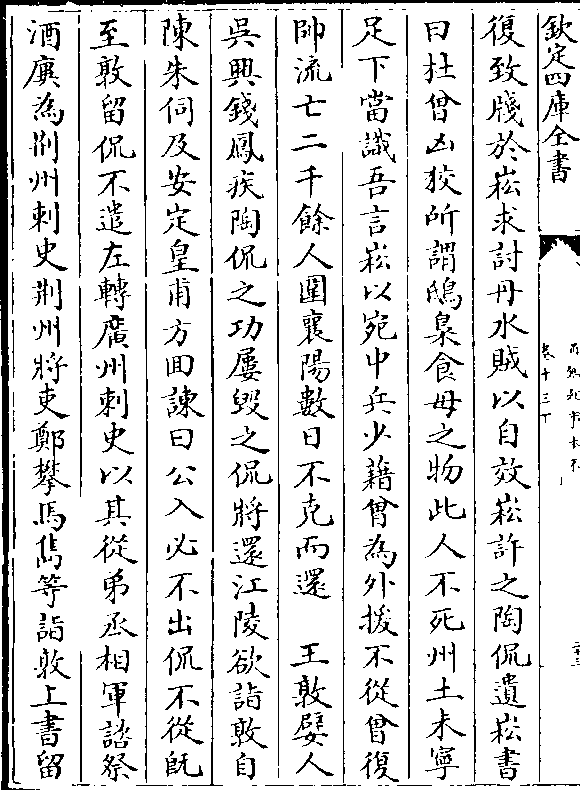 欽定四庫全書
復致牋於崧求討丹水賊以自效崧許之陶侃遺崧書
曰杜曾凶狡所謂鴟梟食母之物此人不死州土未寧
足下當識吾言崧以宛中兵少藉曾為外援不從曾復
帥流亡二千餘人圍襄陽數日不克而還　王敦嬖人
吳興錢鳳疾陶侃之功屢毀之侃將還江陵欲詣敦自
陳朱伺及安定皇甫方回諫曰公入必不出侃不從既
至敦留侃不遣左轉廣州刺史以其從弟丞相軍諮祭
酒廙為荆州刺史荆州將吏鄭攀馬雋等詣敦上書留
卷十三下